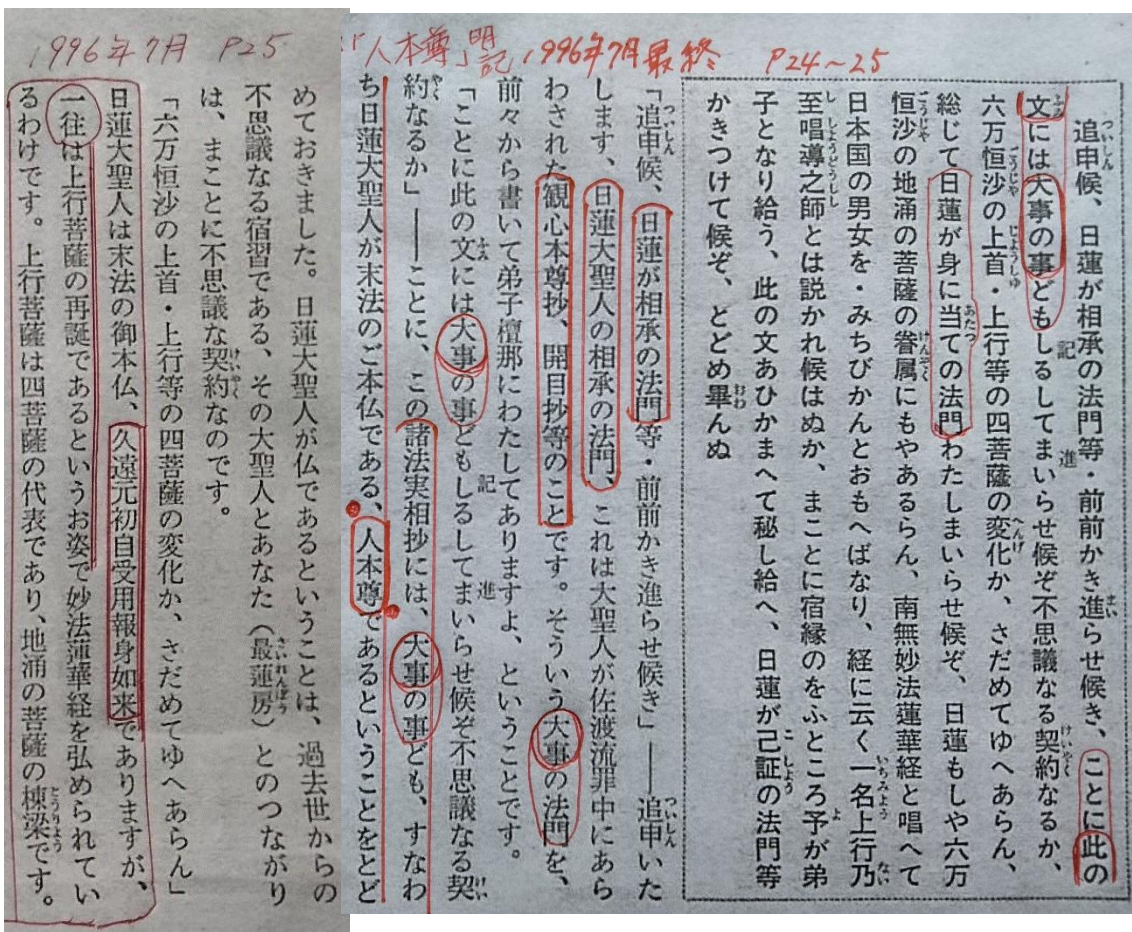 「人本尊」明記 1996年7月最終 P24~25
追申候、日蓮が相承の法門等・前前かき進らせ候き、ことに此の
文には大事の事どもしるしてまいらせ候ぞ不思議なる契約なるか、
六万恒沙の上首・上行等の四菩薩の変化か、さだめてゆへあらん、
総じて日蓮が身に当ての法門わたしまいらせ候ぞ、日蓮もしや六万
恒沙の地涌の菩薩の眷属にもやあるらん、南無妙法蓮華経と唱へて
日本国の男女を・みちびかんとおもへばなり、経に云く一名上行乃
至唱導之師とは説かれ候はぬか、まことに宿縁のをふところ予が弟
子となり給う、此の文あひかまへて秘し給へ、日蓮が己証の法門等
かきつけて候ぞ、とどめ畢んぬ
「追申候、日蓮が相承の法門等・前前かき進らせ候き」――追申いた
します、日蓮大聖人の相承の法門、これは大聖人が佐渡流罪中にあら
わされた観心本尊抄、開目抄等のことです。そういう大事の法門を、
前々から書いて弟子檀那にわたしてありますよ、ということです。
「ことに此の文には大事の事どもしるしてまいらせ候ぞ不思議なる契
約なるか」――ことに、この諸法実相抄には、大事の事ども、すなわ
ち日蓮大聖人が末法のご本仏である、人本尊であるということをとど
1996年7月 P25
めておきました。日蓮大聖人が仏であるということは、過去世からの
不思議なる宿習である、その大聖人とあなた（最蓮房）とのつながり
は、まことに不思議な契約なのです。
「六万恒沙の上首・上行等の四菩薩の変化か、さだめてゆへあらん」
日蓮大聖人は末法の御本仏、久遠元初自受用報身如来でありますが、
一往は上行菩薩の再誕であるというお姿で妙法蓮華経を弘められてい
るわけです。上行菩薩は四菩薩の代表であり、地涌の菩薩の棟梁です。